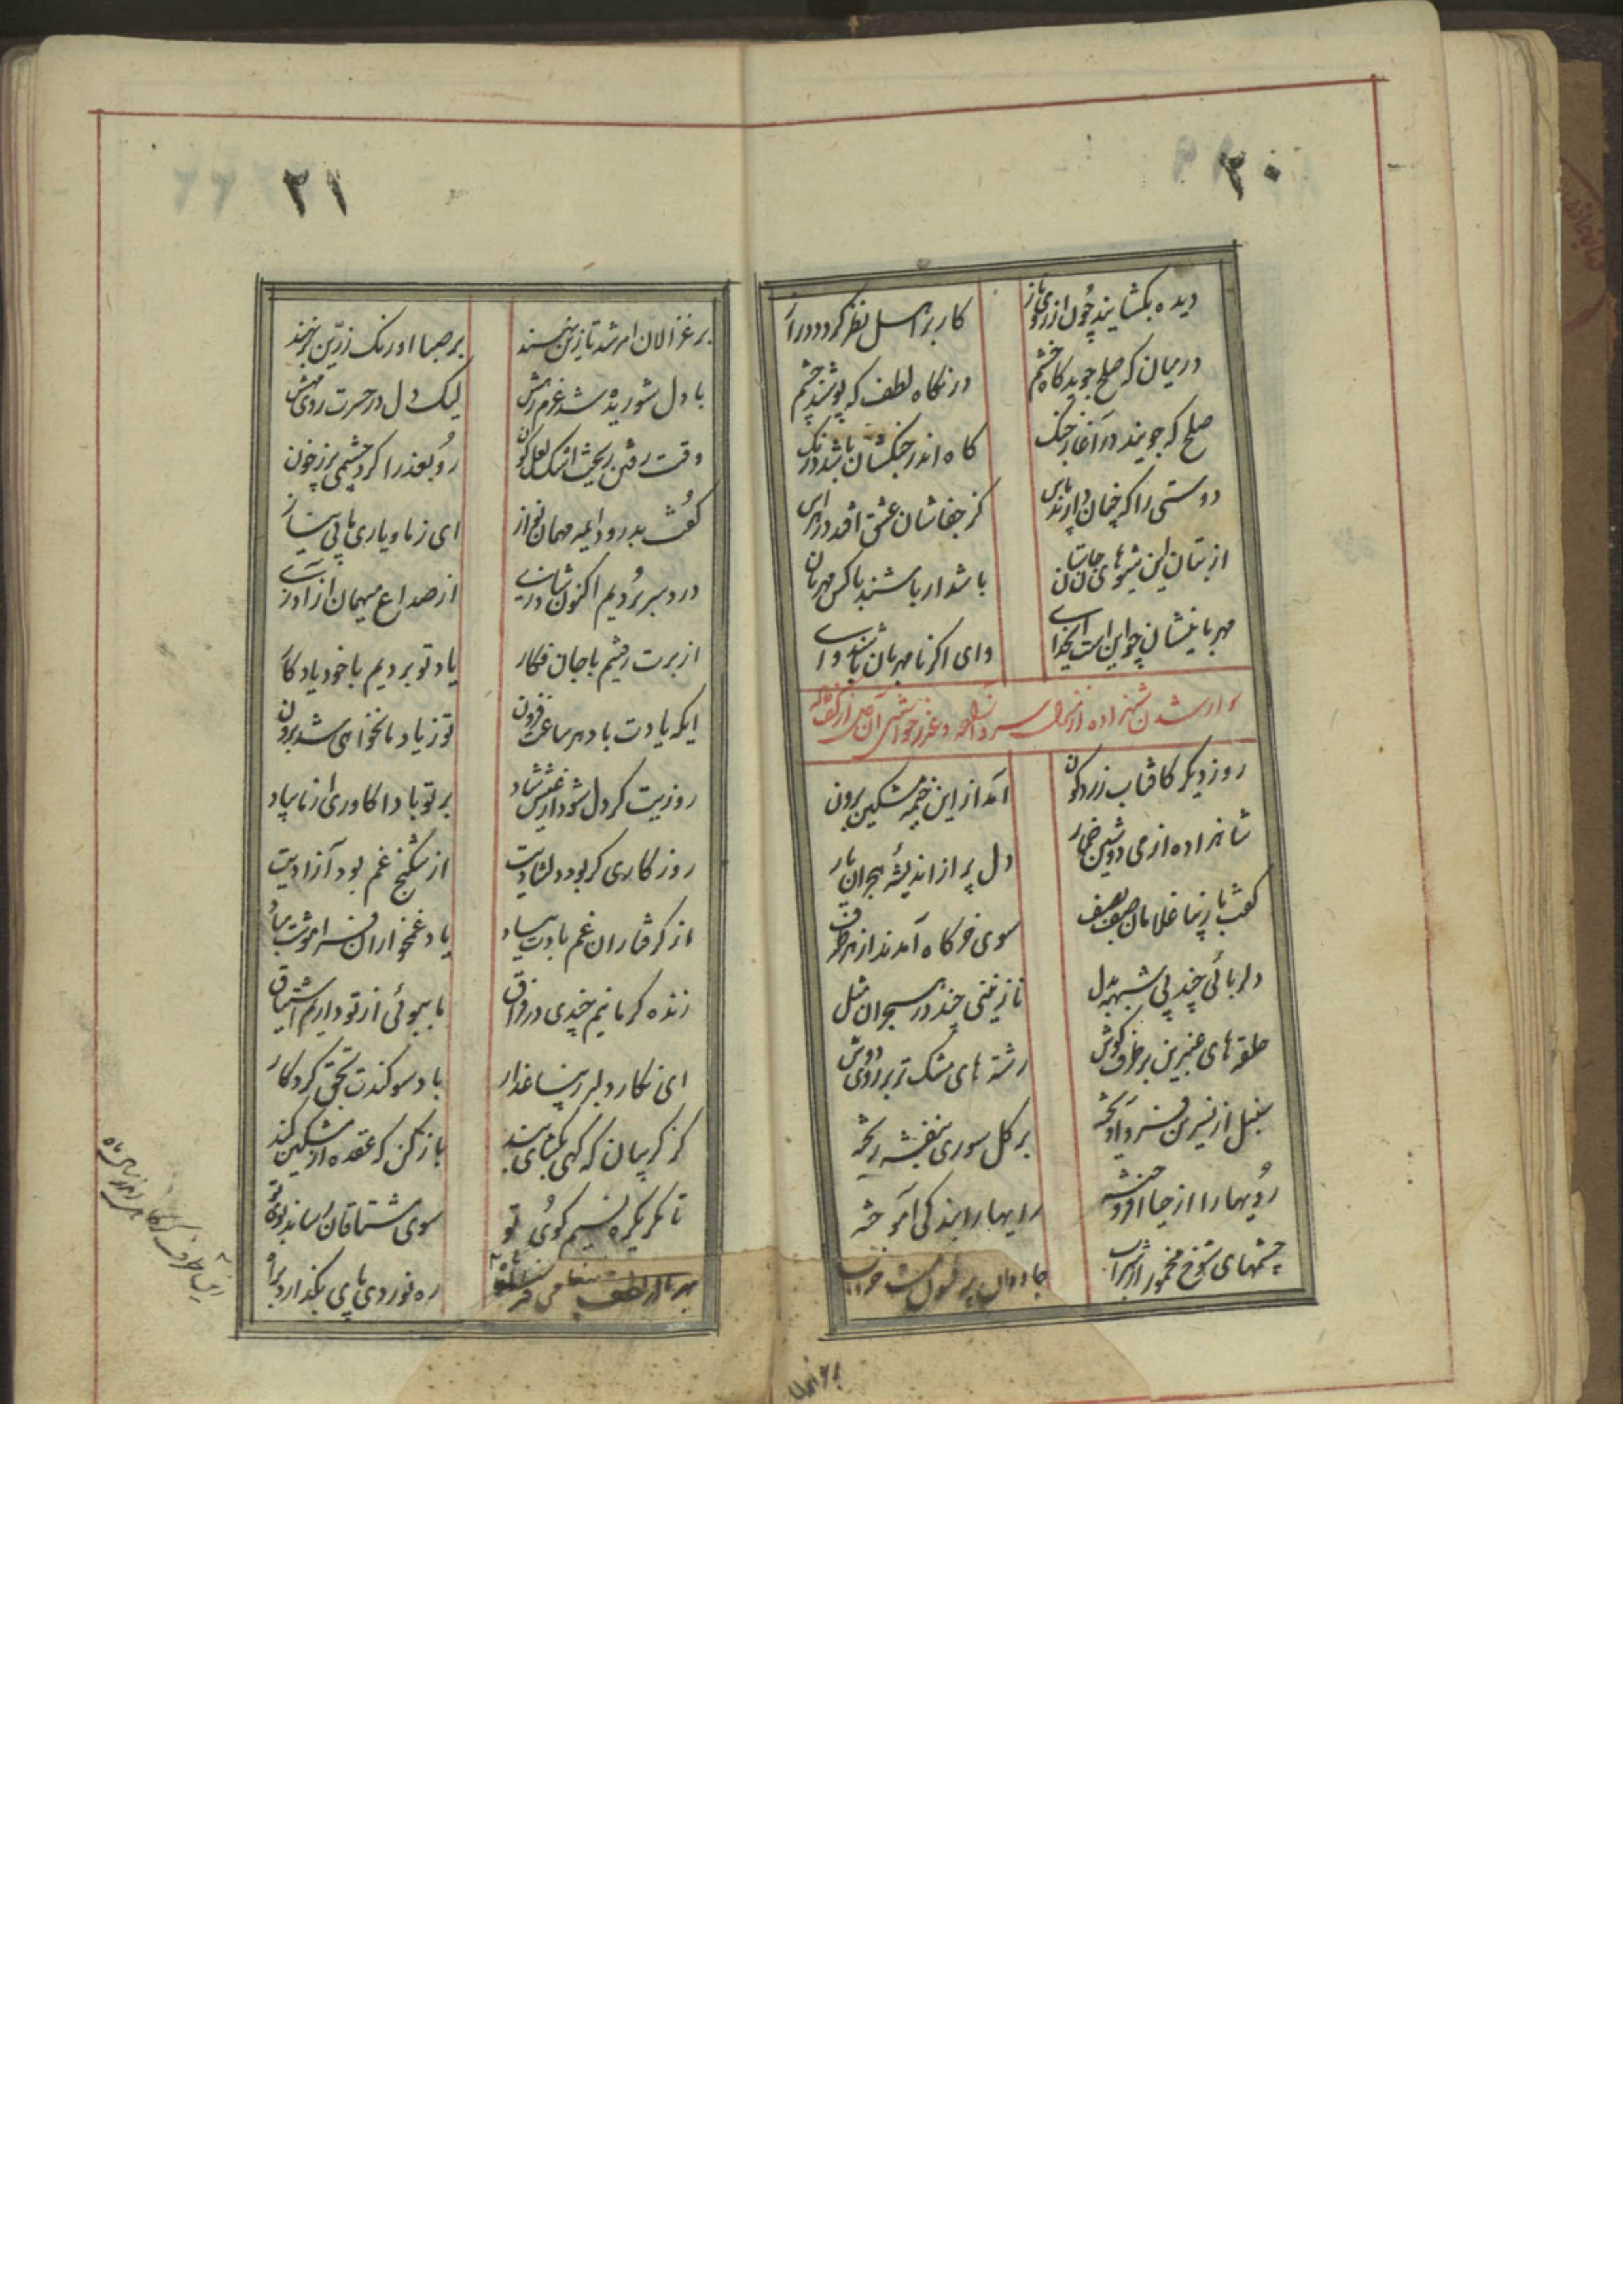 ۲۰
دیده بکشایند چون از روی ناز
کار بر اهل نظر کردد دراز
در میان که صلح جوید کاه خشم
در نکاه لطف که پوشند چشم
صلح که جویند در آغاز جنک
کاه اندر جنکشان باشد درنک
دوستی را که چنان دارند پاس
کز جفاشان عشق افتد در هراس
از بتان این شیوهای جان ستان
باشد ار باشند با کس مهربان
مهربانیشان چو این است ایخدای
وای اکر نامهربان باشند وای
سوار شدن شهزاده از منزل و عذر خواستن آن
روز دیکر کافتاب زردکون
آمد از این خیمه مشکین برون
شاهزاده از می دوشین خمار
دل پر از اندیشهٔ هجران یار
کفت با زیبا غلامان صف بصف
سوی خرکاه آمدند از هر طرف
دلربائی چند بی شبهه بدل
نازنینی چند در هجران مثل
حلقه های عنبرین بر طرف کوش
رشته های مشک تر بر روی دوش
سنبل از نسرین فرو آویخته
بر کل سوری بنفشه ریخته
رویها را از حیا افروخته
رایها را بندکی آموخته
چشمهای شوخ مخمور از شراب
جادوان پر فسون مست خواب
۲۱
بر غزالان امر شد تا زین نهند
بر صبا اورنک زرین برنهند
با دل شوریده شد عزم رهش
لیک دل در حسرت روی مهش
وقت رفتن ریخت اشک لعل کون
رو بعذرا کرد چشمی پر ز خون
کفت بدرود ایمه مهمان نواز
ای ز ما و یاری ما بی نیاز
درد سر بردیم اکنون شاد زی
از صداع میهمان آزاد زی
از برت رفتیم با جان فکار
یاد تو بردیم با خود یادکار
ایکه یادت باد هر ساعت فزون
تو ز یاد ما نخواهی شد برون
روزیت کر دل شود از عیش شاد
بر تو بادا کاوری از ما بیاد
روزکاری کر بود دلشادیت
از شکنج غم بود آزادیت
از کرفتاران غم یادت بیاد
یاد غمخواران فراموشت مباد
زنده کر مانیم چندی در فراق
ما ببوئی از تو داریم اشتیاق
ای نکار دلبر زیبا عذار
باد سوکندت بحق کردکار
کز کریبان که کهی بکشای بند
باز کن که عقده از مشکین کمند
تا مکر یکره نسیم کوی تو
سوی مشتاقان رساند بوی تو
ره نوردی پای بکذارد براه